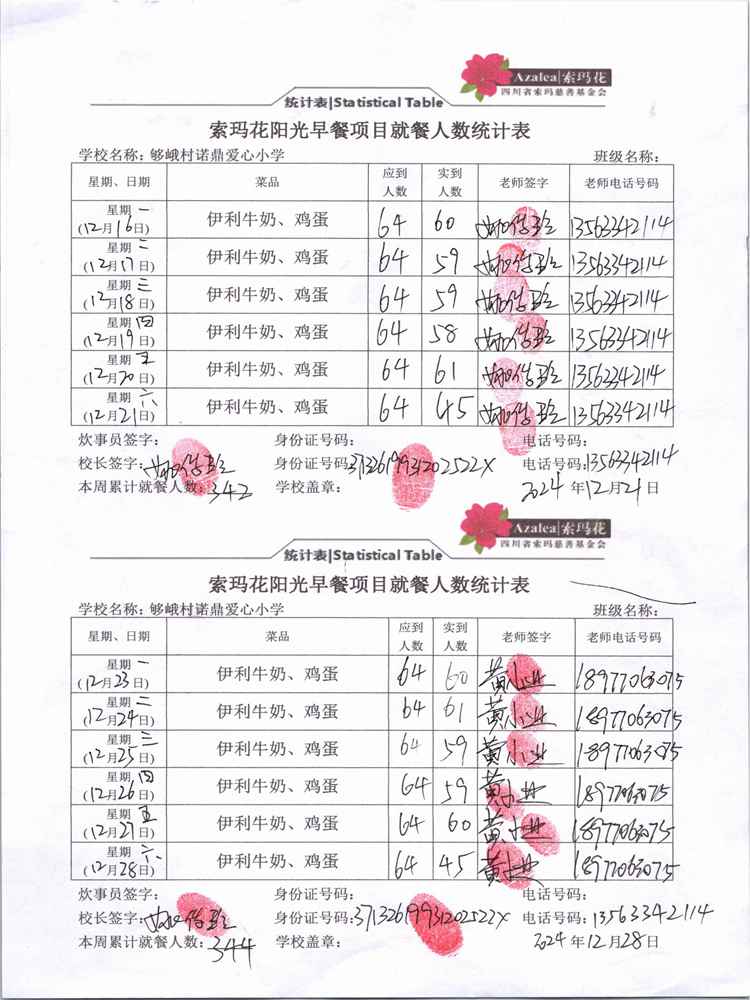 Azalea|索玛花
四川省索玛慈善基金会
统计表|Statistical Table
索玛花阳光早餐项目就餐人数统计表
学校名称：够峨村诺鼎爱心小学 班级名称：
星期、日期 菜品 应到人数 实到人数 老师签字 老师电话号码
星期一 (12月16日) 伊利牛奶、鸡蛋 64 60 13563342114
星期二 (12月17日) 伊利牛奶、鸡蛋 64 59 13563342114
星期三 (12月18日) 伊利牛奶、鸡蛋 64 59 13563342114
星期四 (12月19日) 伊利牛奶、鸡蛋 64 58 13563342114
星期五 (12月20日) 伊利牛奶、鸡蛋 64 61 13563342114
星期六 (12月21日) 伊利牛奶、鸡蛋 64 45 13563342114
炊事员签字： 身份证号码： 电话号码：
校长签字： 身份证号码：37132619931202522X 电话号码：13563342114
本周累计就餐人数：342 学校盖章： 2024年12月21日
Azalea|索玛花
四川省索玛慈善基金会
统计表|Statistical Table
索玛花阳光早餐项目就餐人数统计表
学校名称：够峨村诺鼎爱心小学 班级名称：
星期、日期 菜品 应到人数 实到人数 老师签字 老师电话号码
星期一 (12月23日) 伊利牛奶、鸡蛋 64 60 黄小业 18977063075
星期二 (12月24日) 伊利牛奶、鸡蛋 64 61 黄小业 18977063075
星期三 (12月25日) 伊利牛奶、鸡蛋 64 59 黄小业 18977063075
星期四 (12月26日) 伊利牛奶、鸡蛋 64 59 黄小业 18977063075
星期五 (12月27日) 伊利牛奶、鸡蛋 64 60 黄小业 18977063075
星期六 (12月28日) 伊利牛奶、鸡蛋 64 45 黄小业 18977063075
炊事员签字： 身份证号码： 电话号码：
校长签字： 身份证号码：37132619931202522X 电话号码：13563342114
本周累计就餐人数：344 学校盖章： 2024年12月28日